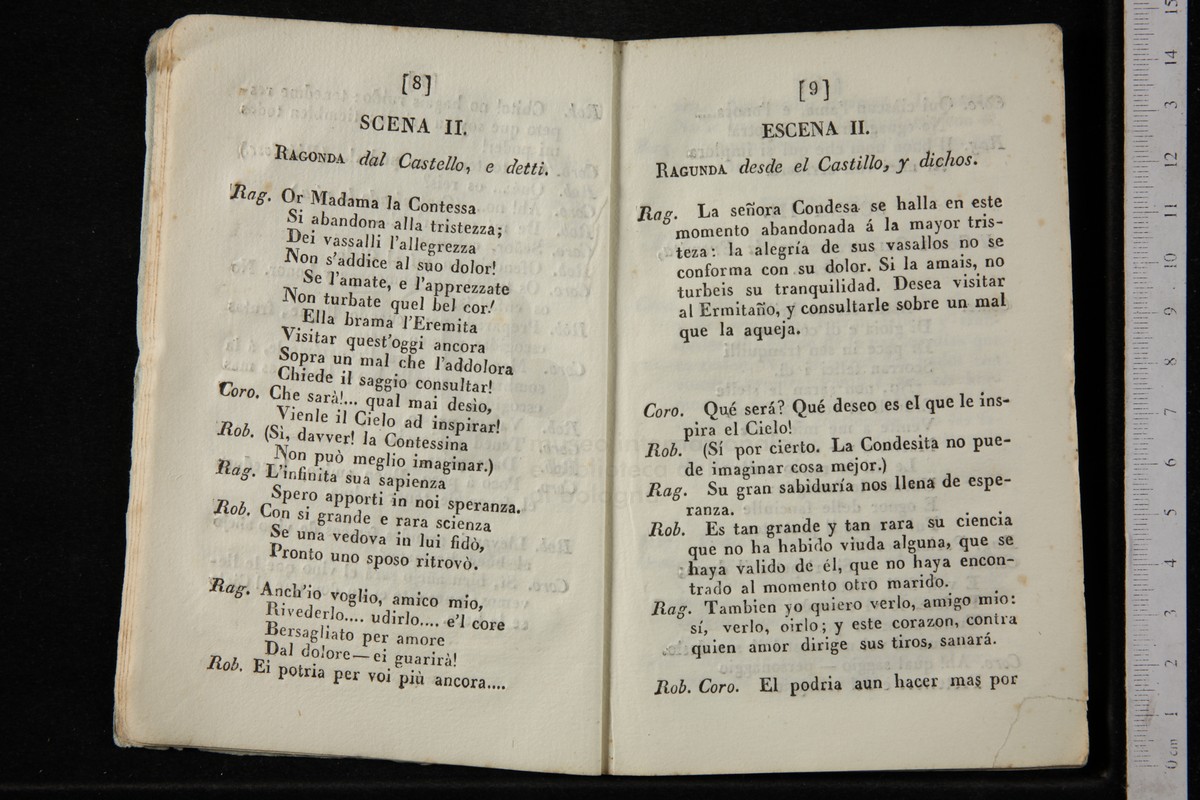 [8]
SCENA II.
RAGONDA dal Castello, e detti.
Rag. Or Madama la Contessa
Si abandona alla tristezza;
Dei vassalli l'allegrezza
Non s'addice al suo dolor!
Se l'amate, e l'apprezzate
Non turbate quel bel cor!
Ella brama l'Eremita
Visitar quest'oggi ancora
Sopra un mal che l'addolora
Chiede il saggio consultar!
Coro. Che sarà!... qual mai desìo,
Vienle il Cielo ad inspirar!
Rob. (Sì, davver! la Contessina
Non può meglio imaginar.)
Rag. L'infinita sua sapienza
Spero apporti in noi speranza.
Rob. Con si grande e rara scienza
Se una vedova in lui fidò,
Pronto uno sposo ritrovò.
Rag. Anch'io voglio, amico mio,
Rivederlo.... udirlo.... e'l core
Bersagliato per amore
Dal dolore—ei guarirà!
Rob. Ei potria per voi più ancora....
[9]
ESCENA II.
RAGUNDA desde el Castillo, y dichos.
Rag. La señora Condesa se halla en este
momento abandonada á la mayor tris-
teza: la alegría de sus vasallos no se
conforma con su dolor. Si la amais, no
turbeis su tranquilidad. Desea visitar
al Ermitaño, y consultarle sobre un mal
que la aqueja.
Coro. Qué será? Qué deseo es el que le ins-
pira el Cielo!
Rob. (Sí por cierto. La Condesita no pue-
de imaginar cosa mejor.)
Rag. Su gran sabiduría nos llena de espe-
ranza.
Rob. Es tan grande y tan rara su ciencia
que no ha habido viuda alguna, que se
haya valido de él, que no haya encon-
trado al momento otro marido.
Rag. Tambien yo quiero verlo, amigo mio:
sí, verlo, oirlo; y este corazon, contra
quien amor dirige sus tiros, sanará.
Rob. Coro. El podria aun hacer mas por